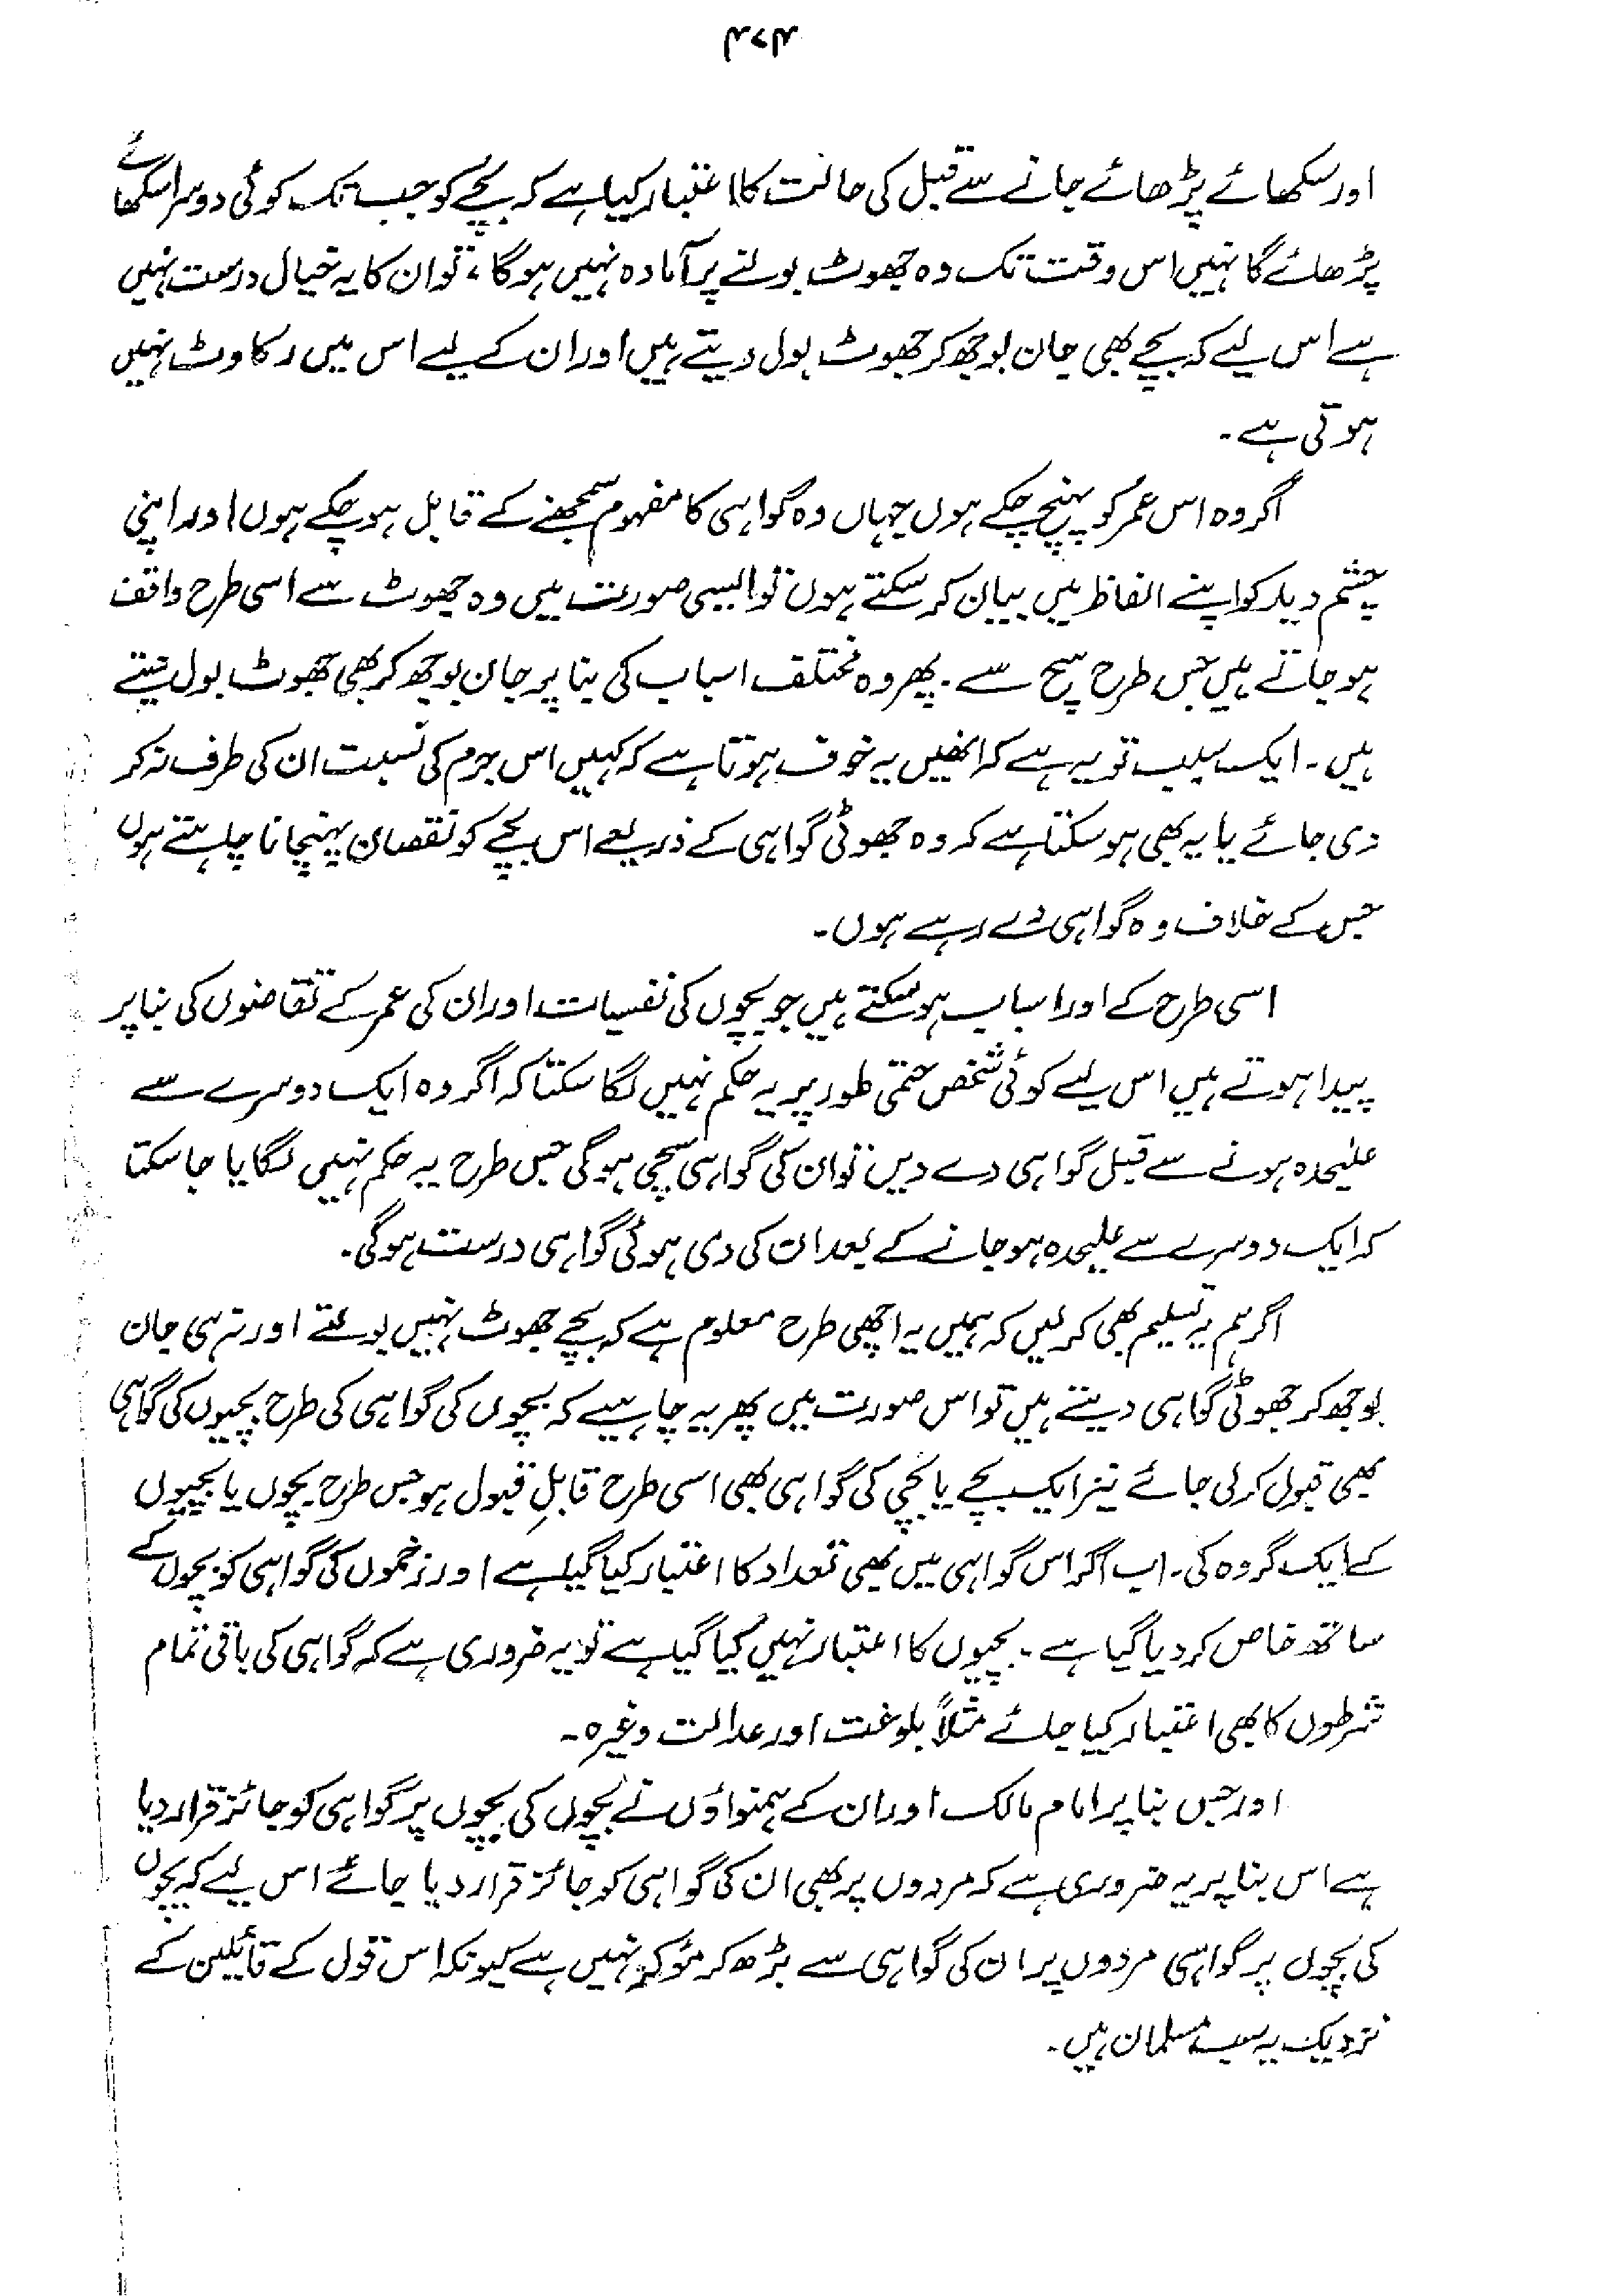 اور سکھائے پڑھائے جانے سے قبل کی حالت کا اعتبار کیا ہے کہ بچے کو جب تک کوئی دوسرا سکھائے
پڑھائے گا نہیں اس وقت تک وہ جھوٹ بولنے پر آمادہ نہیں ہوگا، تو ان کا یہ خیال درست نہیں
ہے اس لیے کہ بچے بھی جان بوجھ کر جھوٹ بول دیتے ہیں اور ان کے لیے اس میں رکاوٹ نہیں
ہوتی ہے۔
اگر وہ اس عمر کو پہنچ چکے ہوں جہاں وہ گواہی کا مفہوم سمجھنے کے قابل ہو چکے ہوں اور اپنی
چشم دید کو اپنے الفاظ میں بیان کر سکتے ہوں تو ایسی صورت میں وہ جھوٹ سے اسی طرح واقف
ہو جاتے ہیں جس طرح سچ سے۔ پھر وہ مختلف اسباب کی بنا پر جان بوجھ کر بھی جھوٹ بول دیتے
ہیں۔ ایک سبب تو یہ ہے کہ انھیں یہ خوف ہوتا ہے کہ کہیں اس جرم کی نسبت ان کی طرف نہ کر
دی جائے یا یہ بھی ہو سکتا ہے کہ وہ جھوٹی گواہی کے ذریعے اس بچے کو نقصان پہنچانا چاہتے ہوں
جس کے خلاف وہ گواہی دے رہے ہوں۔
اسی طرح کے اور اسباب ہو سکتے ہیں جو بچوں کی نفسیات اور ان کی عمر کے تقاضوں کی بنا پر
پیدا ہوتے ہیں اس لیے کوئی شخص حتمی طور پر یہ حکم نہیں لگا سکتا کہ اگر وہ ایک دوسرے سے
علیٰحدہ ہونے سے قبل گواہی دے دیں تو ان کی گواہی سچی ہوگی جس طرح یہ حکم نہیں لگایا جا سکتا
کہ ایک دوسرے سے علیحدہ ہو جانے کے بعد ان کی دی ہوئی گواہی درست ہوگی۔
اگر ہم یہ تسلیم بھی کر لیں کہ ہمیں یہ اچھی طرح معلوم ہے کہ بچے جھوٹ نہیں بولتے اور نہ ہی جان
بوجھ کر جھوٹی گواہی دیتے ہیں تو اس صورت میں پھر یہ چاہیے کہ بچوں کی گواہی کی طرح بچیوں کی گواہی
بھی قبول کر لی جائے نیز ایک بچے یا بچی کی گواہی بھی اسی طرح قابلِ قبول ہو جس طرح بچوں یا بچیوں
کے ایک گروہ کی۔ اب اگر اس گواہی میں بھی تعداد کا اعتبار کیا گیا ہے اور زخموں کی گواہی کو بچوں کے
ساتھ خاص کر دیا گیا ہے۔ بچیوں کا اعتبار نہیں کیا گیا ہے تو یہ ضروری ہے کہ گواہی کی باقی تمام
شرطوں کا بھی اعتبار کیا جائے مثلاً بلوغت اور عدالت وغیرہ۔
اور جس بنا پر امام مالک اور ان کے ہمنواؤں نے بچوں کی بچوں پر گواہی کو جائز قرار دیا
ہے اس بنا پر یہ ضروری ہے کہ مردوں پر بھی ان کی گواہی کو جائز قرار دیا جائے اس لیے کہ بچوں
کی بچوں پر گواہی مردوں پر ان کی گواہی سے بڑھ کر مؤکد نہیں ہے کیونکہ اس قول کے قائلین کے
نزدیک یہ سب مسلمان ہیں۔